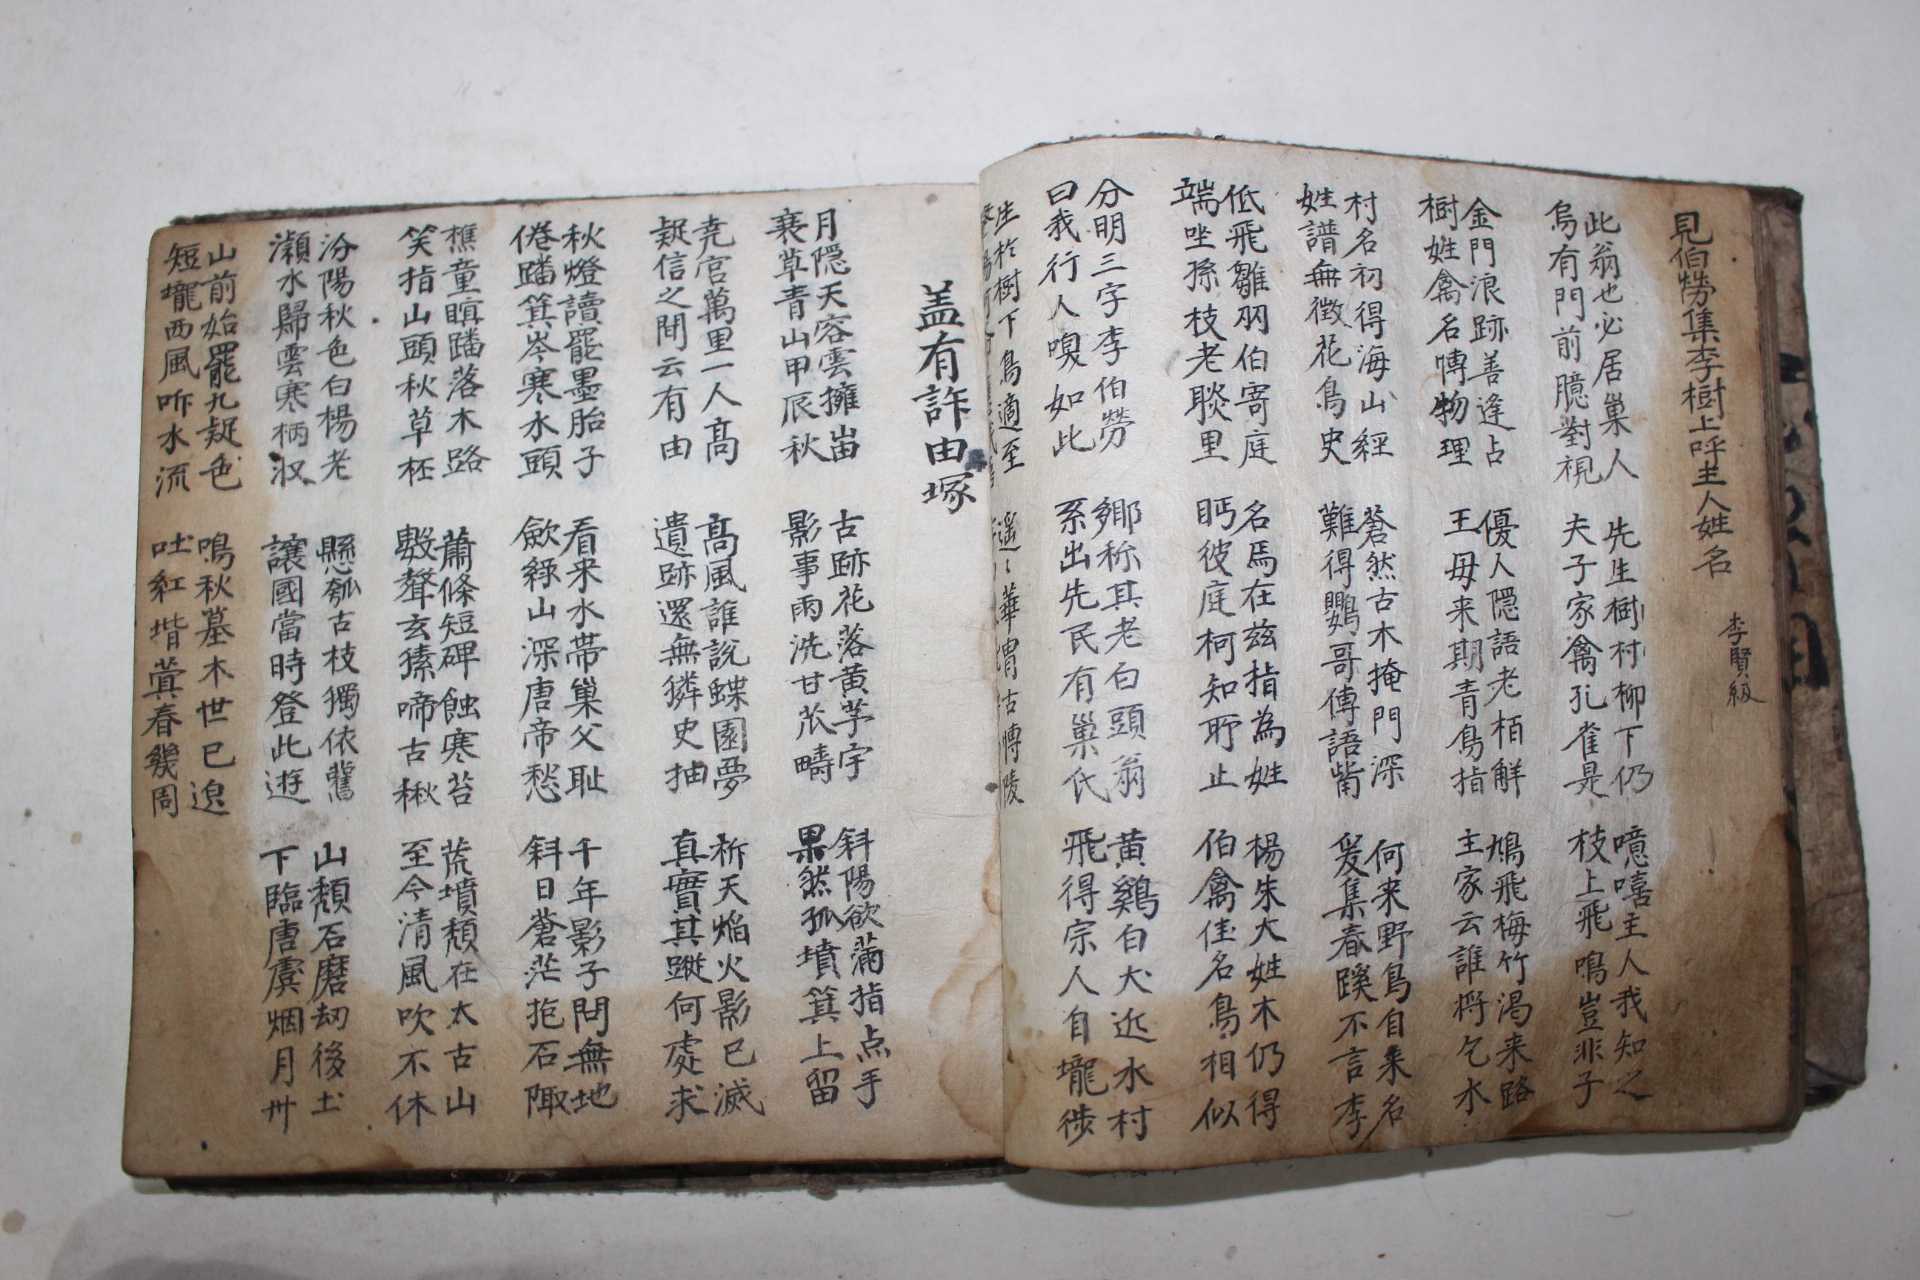 見伯勞集李樹上呼主人姓名
李賢級
此翁也必居巢人
烏有門前臆對視
先生樹村柳下仍
夫子家禽孔雀是
噫嘻主人我知之
枝上飛鳴豈非子
金門浪跡善逢占
樹姓禽名博物理
優人隱語老栢觧
王母来期青鳥指
鳩飛梅竹渴来路
主家云誰將乞水
村名初得海山經
姓譜無徵花鳥史
蒼然古木掩門深
難得鸚哥傳語觜
何来野鳥自来名
爰集春蹊不言李
低飛雛羽伯寄庭
端坐孫枝老聃里
名焉在兹指為姓
眄彼庭柯知所止
楊朱大姓木仍得
伯禽佳名鳥相似
分明三字李伯勞
曰我行人嗅如此
鄉称其老白頭翁
系出先民有巢氏
黄鷄白犬近水村
飛得宗人自壠徙
生於樹下鳥適至
遥〻華胄古博陵
盖有許由塚
月隱天容雲擁峀
衰草青山甲辰秋
古跡花落黄芋宇
影事雨洗甘苽疇
斜陽欲滿指点手
果然孤墳箕上留
堯宮萬里一人高
疑信之間云有由
高風誰說蝶園夢
遺跡還無獜史抽
祈天焰火影已滅
真實其蹤何處求
秋燈讀罷墨胎子
倦蹯箕岑寒水頭
看来水帯巢父耻
歛綠山深唐帝愁
千年影子問無地
斜日蒼茫抱石陬
樵童暝蹯落木路
笑指山頭秋草柸
蕭條短碑蝕寒苔
數聲玄猿啼古楸
荒墳頹在太古山
至今清風吹不休
汾陽秋色白楊老
瀬水歸雲寒柄収
懸瓠古枝獨依舊
讓國當時登此遊
山頹石磨刼後土
下臨唐虞烟月州
山前始罷九疑色
短壠西風咋水流
鳴秋墓木世已邈
吐紅堦蓂春幾周